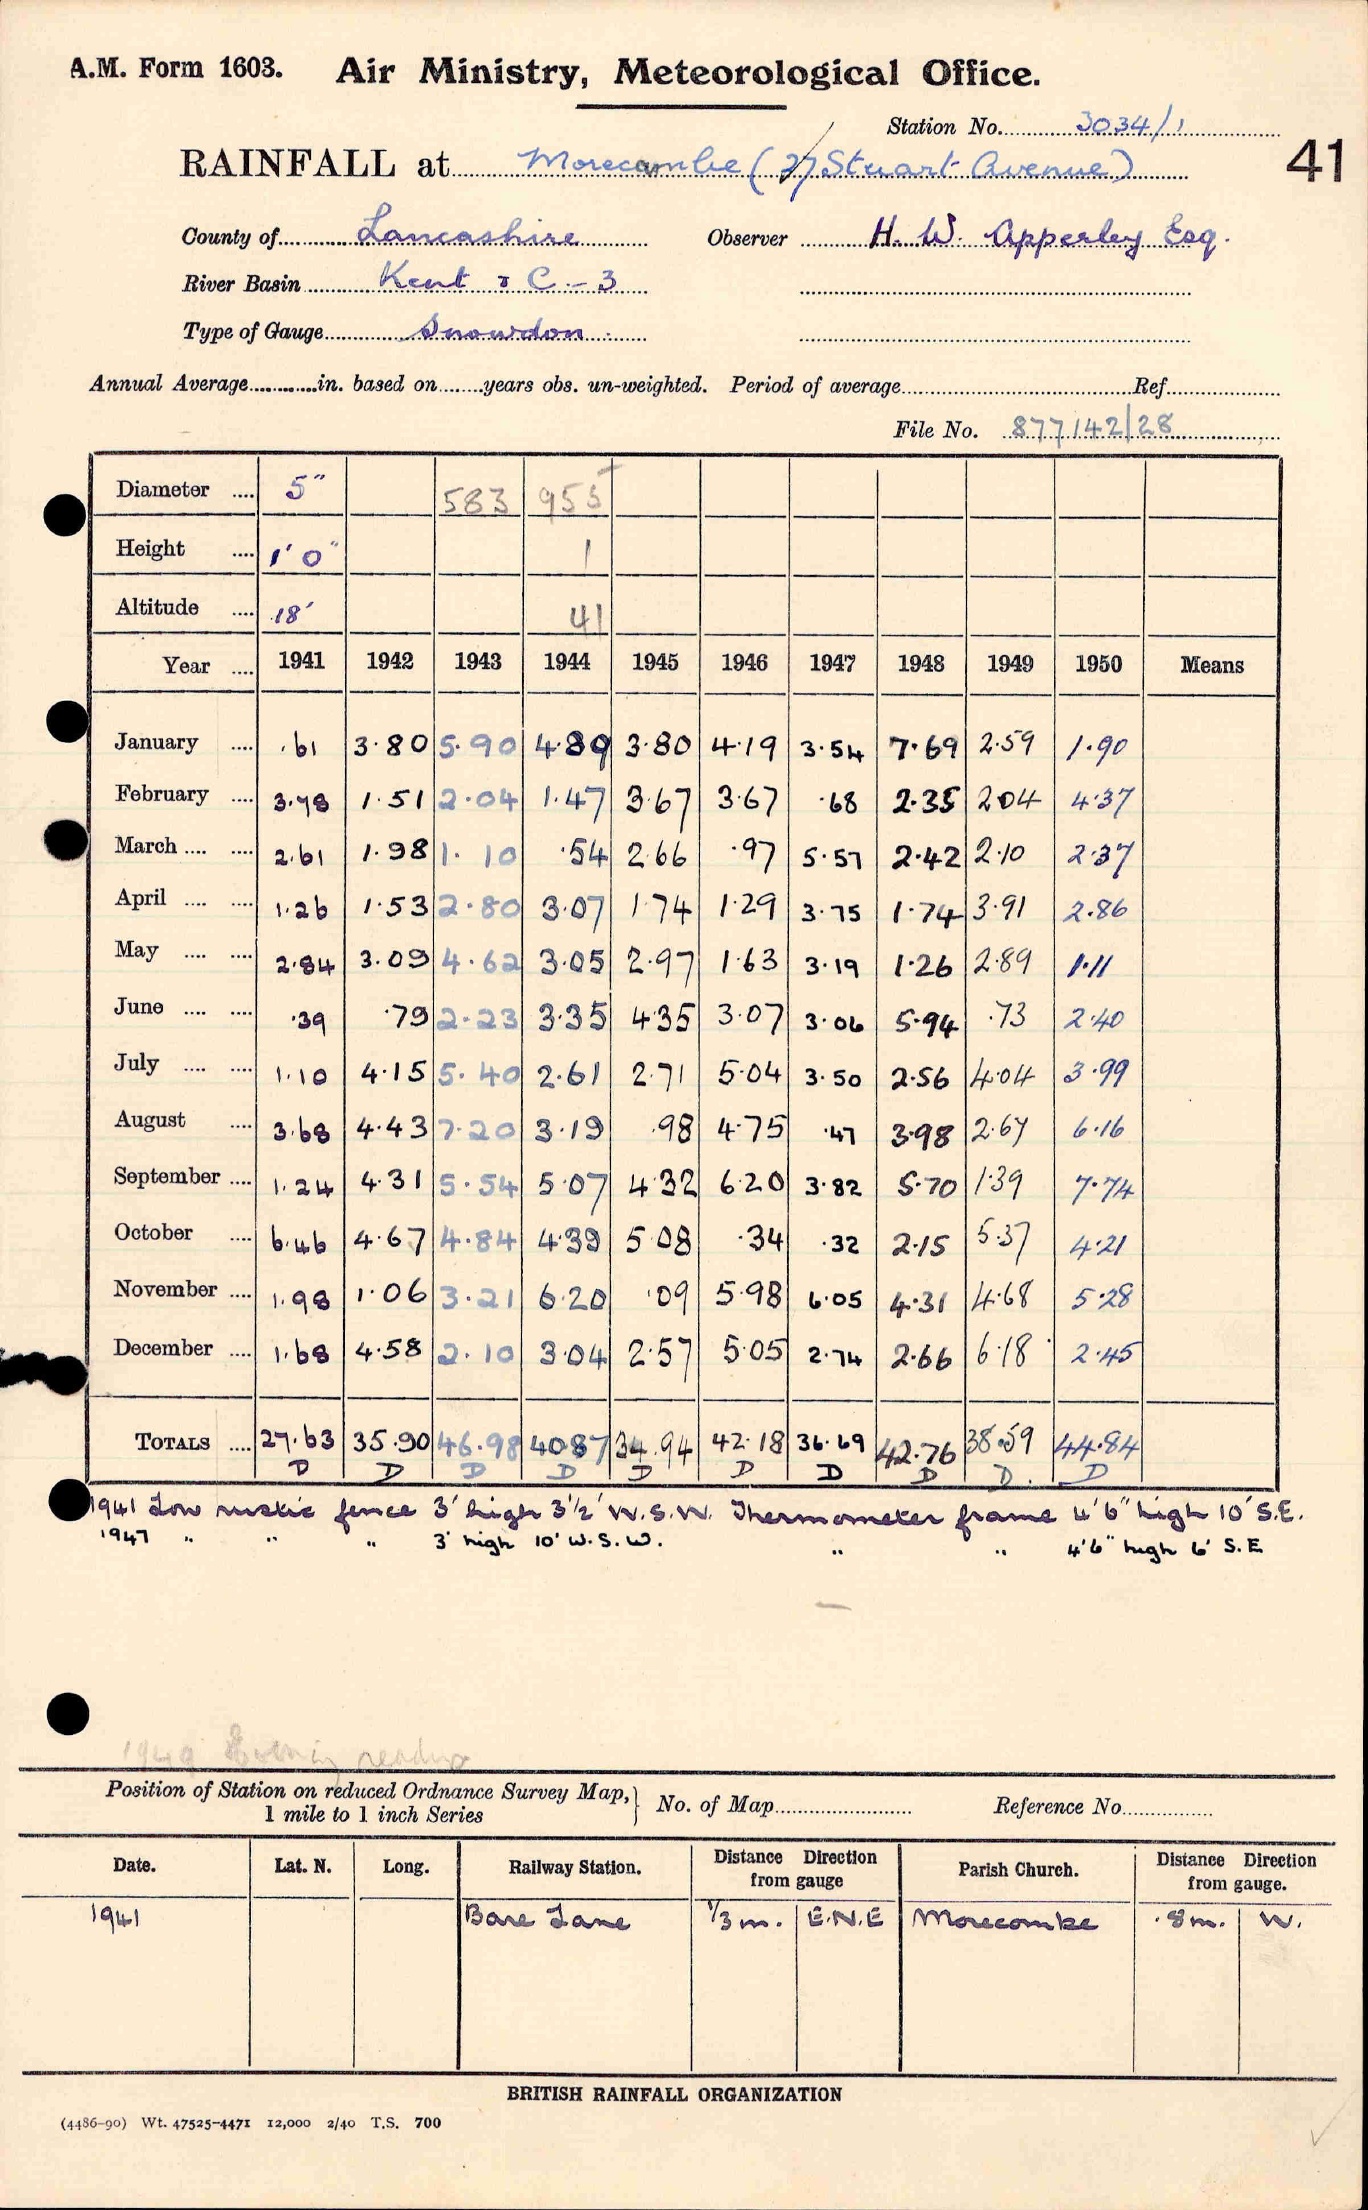 A.M. Form 1603. Air Ministry, Meteorological Office.
Station No. 3034/1
RAINFALL at Morecambe (27 Stuart Avenue)
41
County of Lancashire Observer H. W. Apperley Esq.
River Basin Kent & C - 3
Type of Gauge Snowdon.
Annual Average............in. based on........years obs. un-weighted. Period of average........Ref........
File No. 877142/28
Diameter .... 5" 583 955
Height .... 1' 0" 1
Altitude .... 18' 41
Year .... 1941 1942 1943 1944 1945 1946 1947 1948 1949 1950 Means
January .... .61 3.80 5.90 4.89 3.80 4.19 3.54 7.69 2.59 1.90
February .... 3.78 1.51 2.04 1.47 3.67 3.67 .68 2.35 2.04 4.37
March .... .... 2.61 1.98 1.10 .54 2.66 .97 5.57 2.42 2.10 2.37
April .... .... 1.26 1.53 2.80 3.07 1.74 1.29 3.75 1.74 3.91 2.86
May .... .... 2.84 3.09 4.62 3.05 2.97 1.63 3.19 1.26 2.89 1.11
June .... .... .39 .79 2.23 3.35 4.35 3.07 3.06 5.94 .73 2.40
July .... .... 1.10 4.15 5.40 2.61 2.71 5.04 3.50 2.56 4.04 3.99
August .... 3.68 4.43 7.20 3.19 .98 4.75 .47 3.98 2.67 6.16
September .... 1.24 4.31 5.54 5.07 4.32 6.20 3.82 5.70 1.39 7.74
October .... 6.46 4.67 4.84 4.39 5.08 .34 .32 2.15 5.37 4.21
November .... 1.98 1.06 3.21 6.20 .09 5.98 6.05 4.31 4.68 5.28
December .... 1.68 4.58 2.10 3.04 2.57 5.05 2.74 2.66 6.18 2.45
TOTALS .... 27.63 35.90 46.98 40.87 34.94 42.18 36.69 42.76 38.59 44.84
D D D D D D D D D. D
1941 Low rustic fence 3' high 3½' W.S.W. Thermometer frame 4'6" high 10' S.E.
1947 " " " 3' high 10' W.S.W. " " 4'6" high 6' S.E
1949 Evening readings
Position of Station on reduced Ordnance Survey Map, 1 mile to 1 inch Series } No. of Map........ Reference No........
Date. Lat. N. Long. Railway Station. Distance Direction from gauge Parish Church. Distance Direction from gauge.
1941 Bare Lane 1/3 m. E.N.E Morecombe .8m. W.
BRITISH RAINFALL ORGANIZATION
(4486-90) Wt. 47525-4471 12,000 2/40 T.S. 700